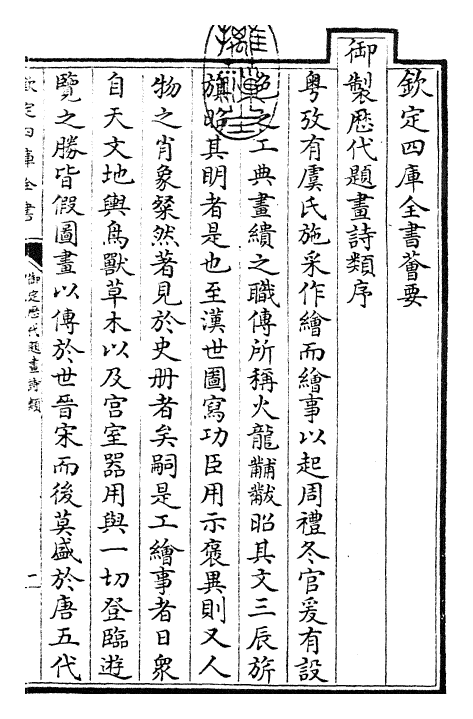 欽定四庫全書薈要
御製歷代題畫詩類序
粤攷有虞氏施采作繪而繪事以起周禮冬官爰有設
色之工典畫繢之職傳所稱火龍黼黻昭其文三辰旂
旗昭其明者是也至漢世圖寫功臣用示褒異則又人
物之肖象粲然著見於史册者矣嗣是工繪事者日衆
自天文地輿鳥獸草木以及宫室器用與一切登臨遊
覽之勝皆假圖畫以傳於世晉宋而後莫盛於唐五代
欽定四庫全書
御定歷代題畫詩類